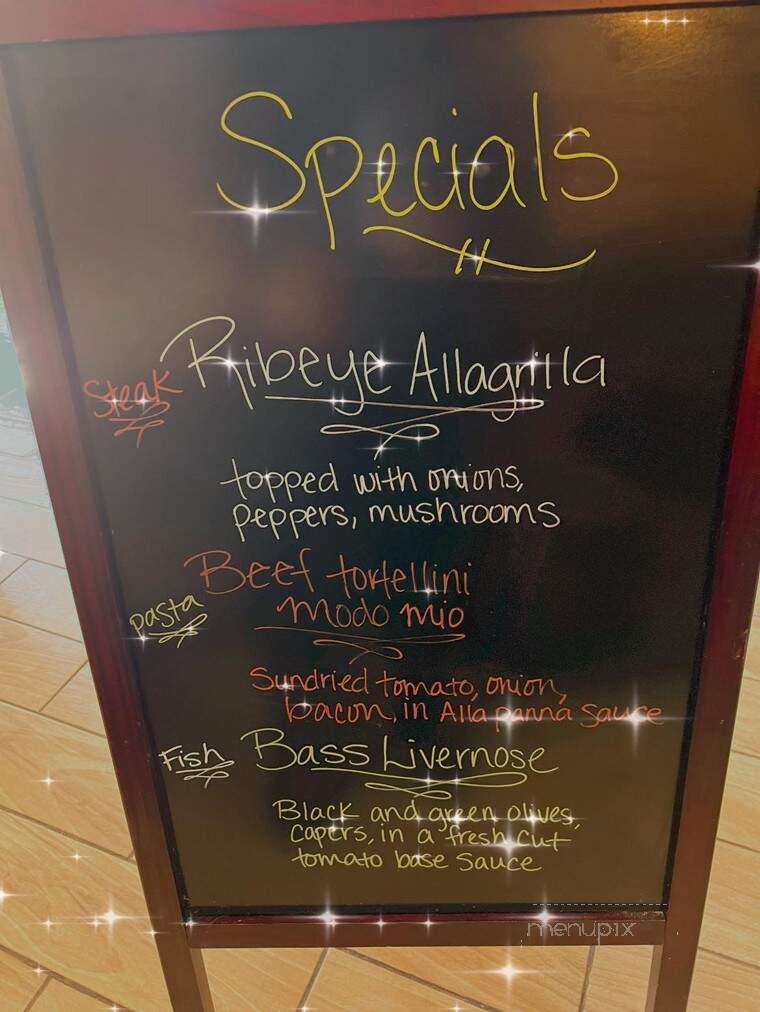 Specials
Steak Ribeye Allagrilla
topped with onions,
peppers, mushrooms
Beef tortellini
pasta Modo mio
Sundried tomato, onion,
bacon, in Alla panna Sauce
Fish Bass Livernose
Black and green olives,
capers, in a fresh cut
tomato base Sauce
menupix